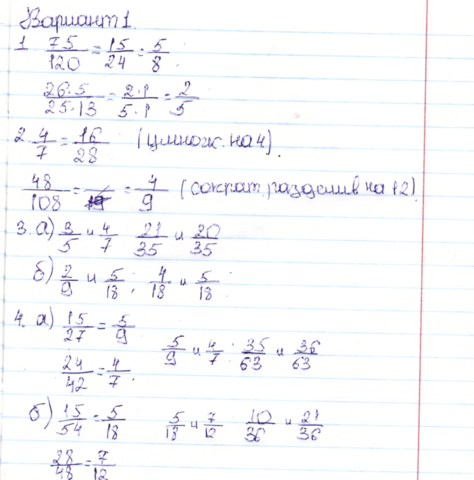 Вариант 1.
1 75/120 = 15/24 = 5/8.
26·5/25·13 = 2·1/5·1 = 2/5
2. 4/7 = 16/28 (умнож. на 4).
48/108 = = 4/9 (сократ., разделив на 12).
3. а) 3/5 и 4/7 21/35 и 20/35
б) 2/9 и 5/18; 4/18 и 5/18.
4. а) 15/27 = 5/9
5/9 и 4/7. 35/63 и 36/63
24/42 = 4/7.
б) 15/54 = 5/18 5/18 и 7/12 10/36 и 21/36
28/48 = 7/12